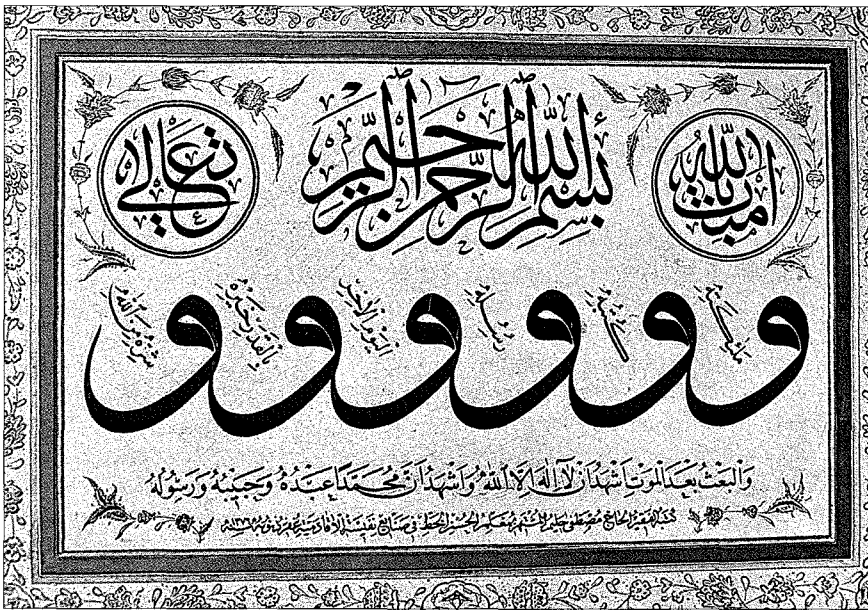 امنت بالله
بسم الله الرحمن الرحيم
تعالى
و ملئكته و كتبه و رسله و اليوم الاخر و بالقدر خيره و شره من الله
والبعث بعد الموت اشهد ان لا اله الا الله واشهد ان محمدا عبده وحبيبه ورسوله
كتبه الفقير الحاج مصطفى حليم